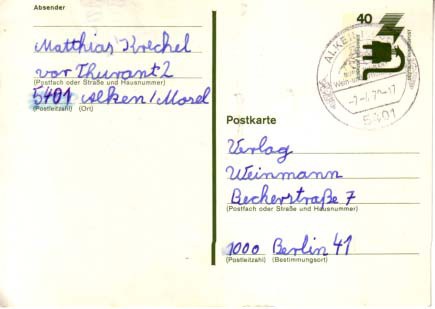 Absender
Matthias Krechel
vor Thurant 2
(Postfach oder Straße und Hausnummer)
5401 Alken/Mosel
(Postleitzahl) (Ort)
40
ALKEN
5401
Postkarte
Verlag
Weinmann
Beckerstraße 7
(Postfach oder Straße und Hausnummer)
1000 Berlin 41
(Postleitzahl) (Bestimmungsort)